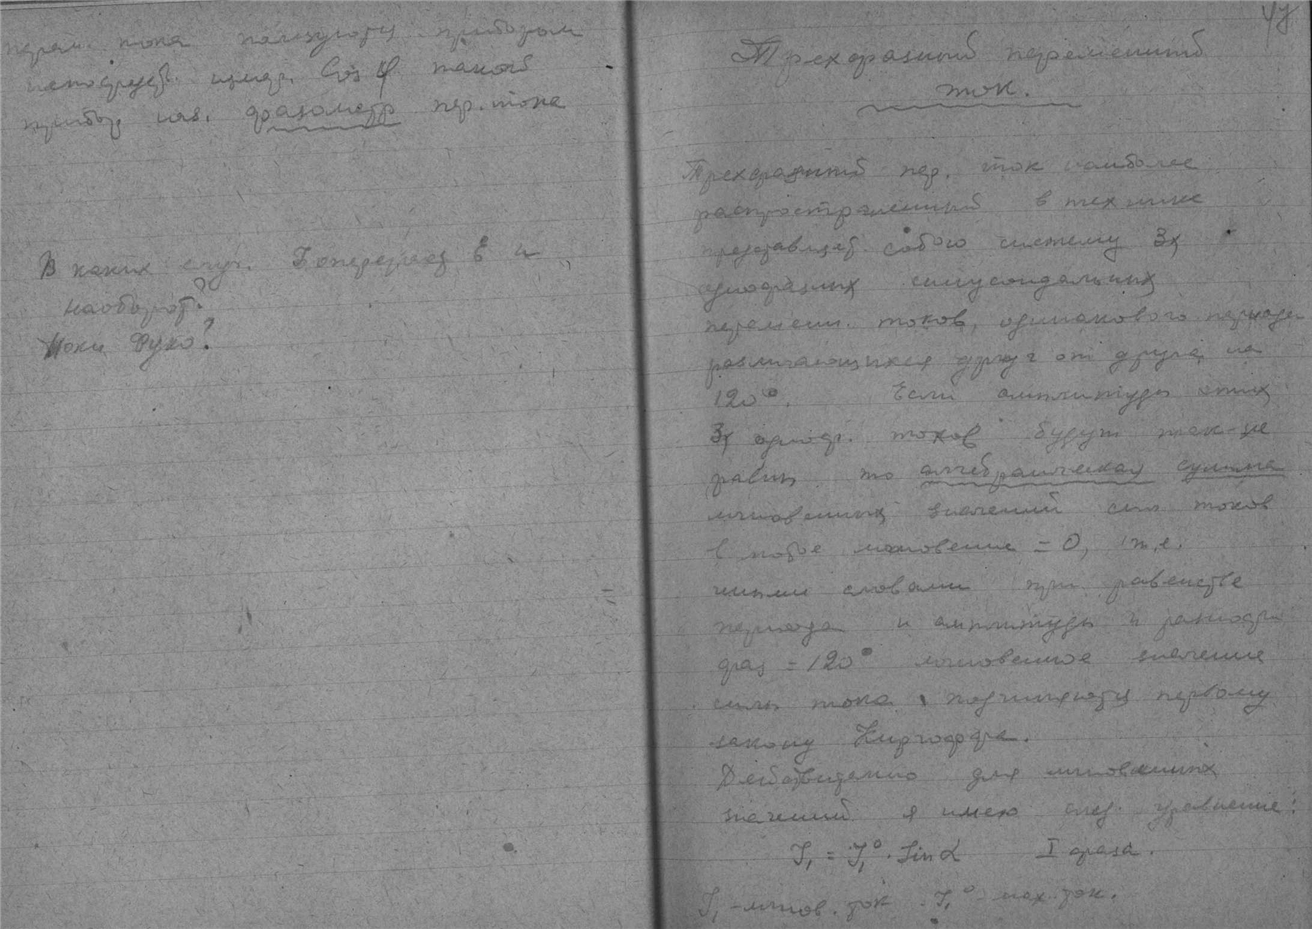 перем. тока пользуются прибором
непосредств. измер. Cos φ такой
прибор наз. фазометр пер. тока
В каких случ. I опережает E и
наоборот?
Токи Фуко?
47
Трехфазный переменный
ток.
Трехфазный пер. ток наиболее
распространенный в технике
представляет собою систему 3х
однофазных синусоидальных
перемен. токов, одинакового периода
различающихся друг от друга на
120°. Если амплитуды этих
3х одноф. токов будут так-же
равны то алгебраическая сумма
мгновенных значений сил токов
в любое мгновение = 0, т.е.
иными словами при равенстве
периода и амплитуды и разности
фаз = 120° мгновенное значение
силы тока подчиняются первому
закону Кирхгоффа.
Действительно для мгновенных
значений я имею след. уравнение:
J₁ = J₁° · Sin α I фаза.
J₁ – мгнов. ток J₁° – мах. ток.